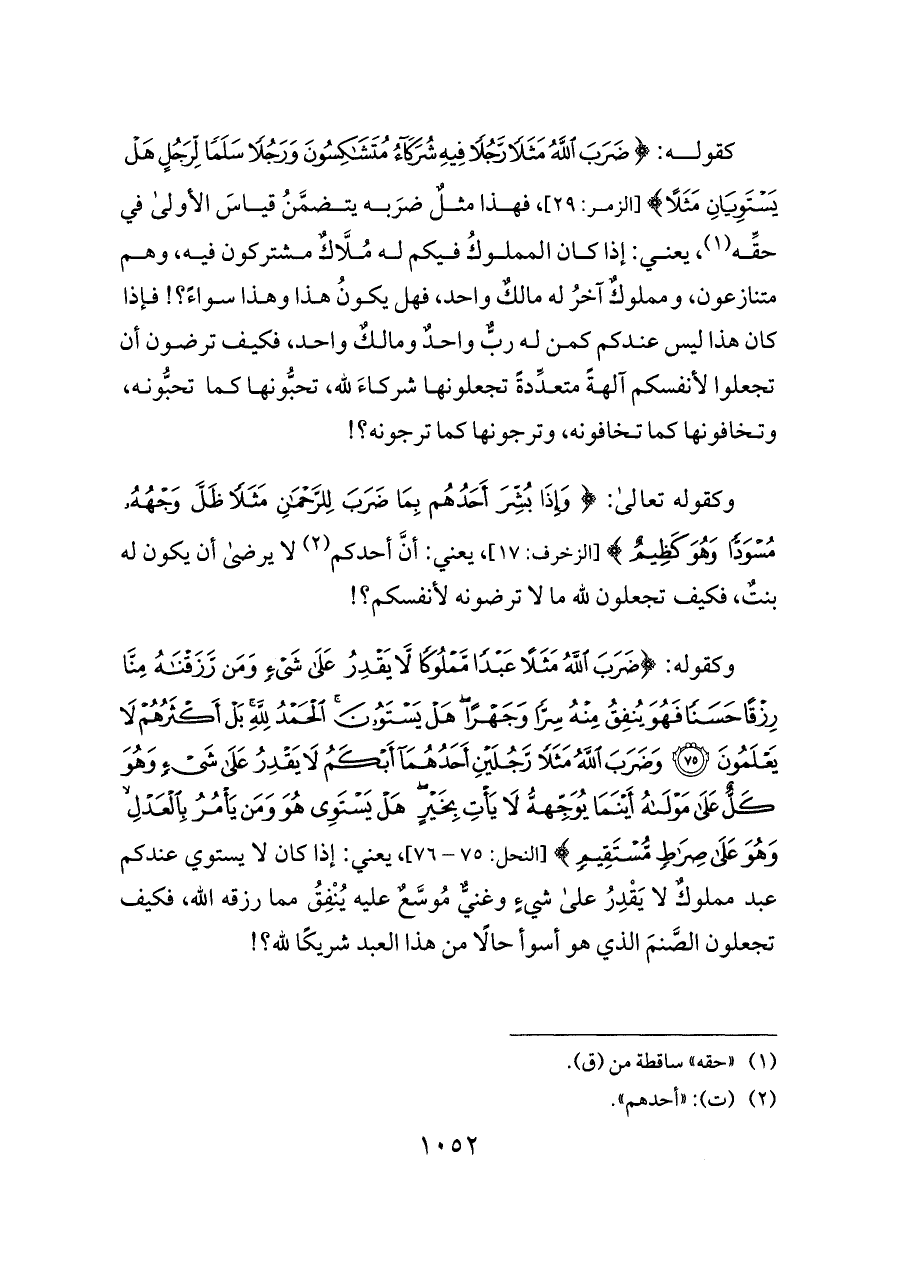 كقولـــه: ﴿ ضَرَبَ ٱللَّهُ مَثَلًا رَّجُلًا فِيهِ شُرَكَآءُ مُتَشَٰكِسُونَ وَرَجُلًا سَلَمًا لِّرَجُلٍ هَلْ
يَسْتَوِيَانِ مَثَلًا﴾ [الزمر: ٢٩]، فهـذا مثـلٌ ضرَبـه يتـضمَّنُ قيـاسَ الأولىٰ في
حقِّـه(١)، يعنـي: إذا كـان المملـوكُ فـيكم لـه مُـلَّاكٌ مـشتركون فيـه، وهـم
متنازعون، ومملوكٌ آخرُ له مالكٌ واحد، فهل يكـونُ هـذا وهـذا سـواءً؟! فـإذا
كان هذا ليس عنـدكم كمـن لـه ربٌّ واحـدٌ ومالـكٌ واحـد، فكيـف ترضـون أن
تجعلـوا لأنفسكم آلهـةً متعـدِّدةً تجعلونهـا شركـاءَ لله، تحبُّونهـا كمـا تحبُّونـه،
وتـخافونها كما تـخافونه، وترجونها كما ترجونه؟!
وكقوله تعالىٰ: ﴿ وَإِذَا بُشِّرَ أَحَدُهُم بِمَا ضَرَبَ لِلرَّحْمَٰنِ مَثَلًا ظَلَّ وَجْهُهُۥ
مُسْوَدًّا وَهُوَ كَظِيمٌ ﴾ [الزخرف: ١٧]، يعني: أنَّ أحدكم(٢) لا يرضىٰ أن يكون له
بنتٌ، فكيف تجعلون لله ما لا ترضونه لأنفسكم؟!
وكقوله: ﴿ضَرَبَ ٱللَّهُ مَثَلًا عَبْدًا مَّمْلُوكًا لَّا يَقْدِرُ عَلَىٰ شَىْءٍ وَمَن رَّزَقْنَٰهُ مِنَّا
رِزْقًا حَسَنًا فَهُوَ يُنفِقُ مِنْهُ سِرًّا وَجَهْرًا ۖ هَلْ يَسْتَوُۥنَ ۚ ٱلْحَمْدُ لِلَّهِ ۚ بَلْ أَكْثَرُهُمْ لَا
يَعْلَمُونَ ٧٥ وَضَرَبَ ٱللَّهُ مَثَلًا رَّجُلَيْنِ أَحَدُهُمَآ أَبْكَمُ لَا يَقْدِرُ عَلَىٰ شَىْءٍ وَهُوَ
كَلٌّ عَلَىٰ مَوْلَىٰهُ أَيْنَمَا يُوَجِّههُّ لَا يَأْتِ بِخَيْرٍ ۖ هَلْ يَسْتَوِى هُوَ وَمَن يَأْمُرُ بِٱلْعَدْلِ ۙ
وَهُوَ عَلَىٰ صِرَٰطٍ مُّسْتَقِيمٍ ﴾ [النحل: ٧٥ – ٧٦]، يعني: إذا كان لا يستوي عندكم
عبد مملوكٌ لا يَقْدِرُ علىٰ شيءٍ وغنيٌّ مُوسَّعٌ عليه يُنْفِقُ مما رزقه الله، فكيف
تجعلون الصَّنمَ الذي هو أسوأ حالًا من هذا العبد شريكًا لله؟!
(١) «حقه» ساقطة من (ق).
(٢) (ت): «أحدهم».
١٠٥٢